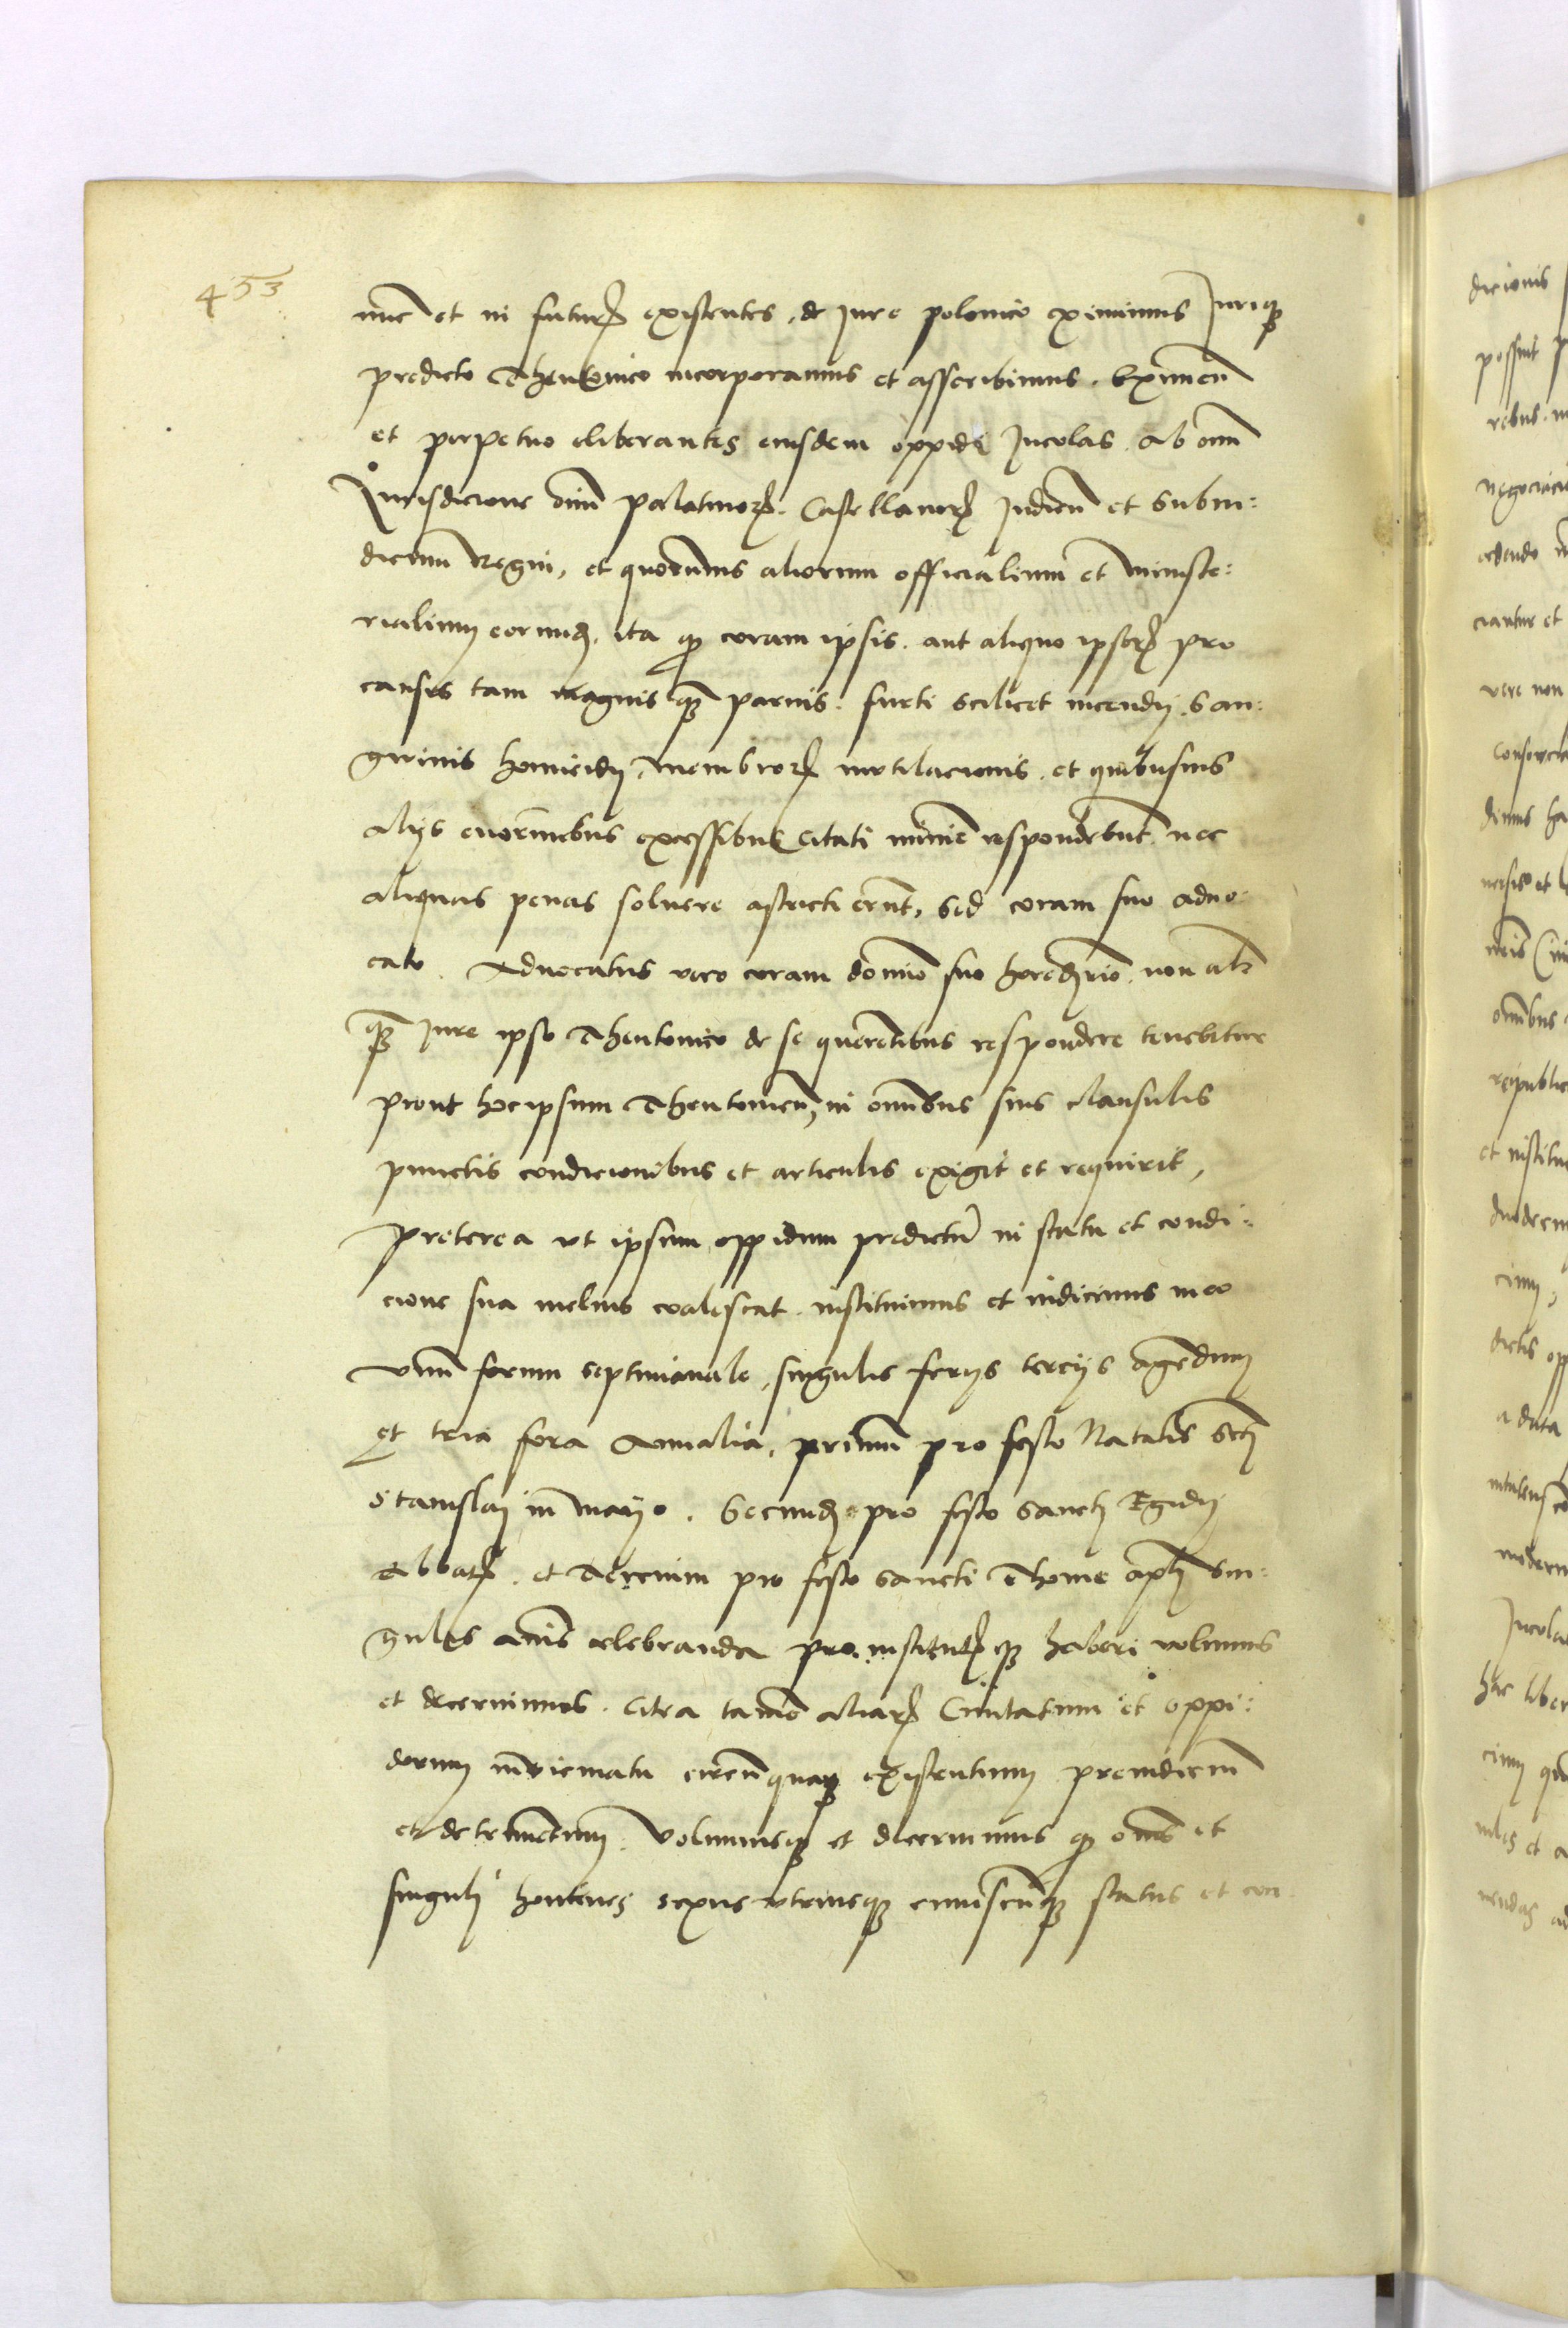 453
nunc et in futurum existentes, de Jure polonico eximimus Jurique
predicto Theutonico incorporamus et asscribimus. Eximentes
et perpetuo eliberantes eiusdem oppidi Incolas. ab omni
Jurisdicione omnium palatinorum. Castellanorum Judicum et Subiu:
dicum Regni, et quorumvis aliorum officialium et ministe:
rialium eorundem. ita quod coram ipsis. aut aliquo ipsorum pro
causis tam magnis quam parvis. furti scilicet incendij. San:
gwinis homicidij. Membrorum mutilacionis. et quibusvis
alijs enormibus excessibus Citati minime respondebunt. nec
aliquas penas soluere astricti erunt, Sed coram suo aduo:
cato. Aduocatus vero coram domino suo hereditario. non aliter
quam Jure ipso Theutonico de se querentibus respondere tenebitur
prout hoc ipsum Theutonicum in omnibus suis clausulis
punctis condicionibus et articulis exigit et requirit,
Preterea ut ipsum oppidum predictum in statu et condi:
cione sua melius coalescat. instituimus et indicimus in eo
Vnum forum septimanale, singulis ferijs tercijs agendum
et tria fora Annalia, primum pro festo Natalis Sancti
Stanislaj in Maijo. Secundum pro festo Sancti Egidij
Abbatis. et Tercium pro festo Sancti Thome apostoli Sin:
gulis annis celebranda pro institutisque haberi volumus
et decernimus. Citra tamen aliarum Ciuitatum et oppi:
dorum in vicinatu circumquaque existentium preiudicium
et detrimentum. Volumusque et decernimus quod omnes et
singuli homines sexus vtriusque cuiuscunque status et con
dicionis
possint
rebus
cedendo
ciantur et
vere non
dimus
omnibus
et institu
cimus
dictis opp
a data
Incola